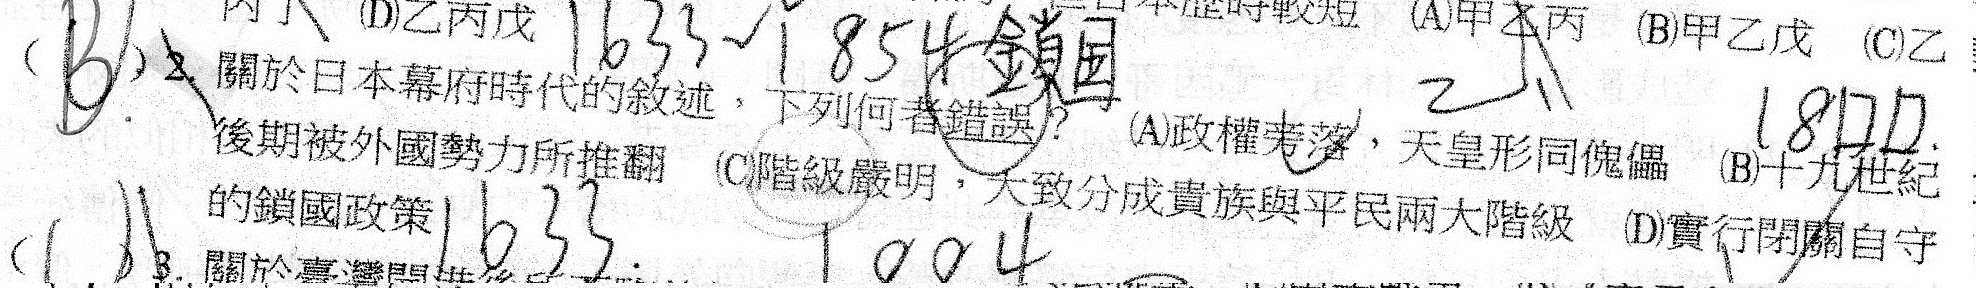 (D)乙丙戊 1633~1854 鎖国 日本歷時較短 (A)甲乙丙 (B)甲乙戊 (C)乙
(B) 2. 關於日本幕府時代的敘述，下列何者錯誤？ (A)政權旁落，天皇形同傀儡 (B)十九世紀
後期被外國勢力所推翻 (C)階級嚴明，大致分成貴族與平民兩大階級 (D)實行閉關自守
的鎖國政策 1633.
3. 關於臺灣開港後